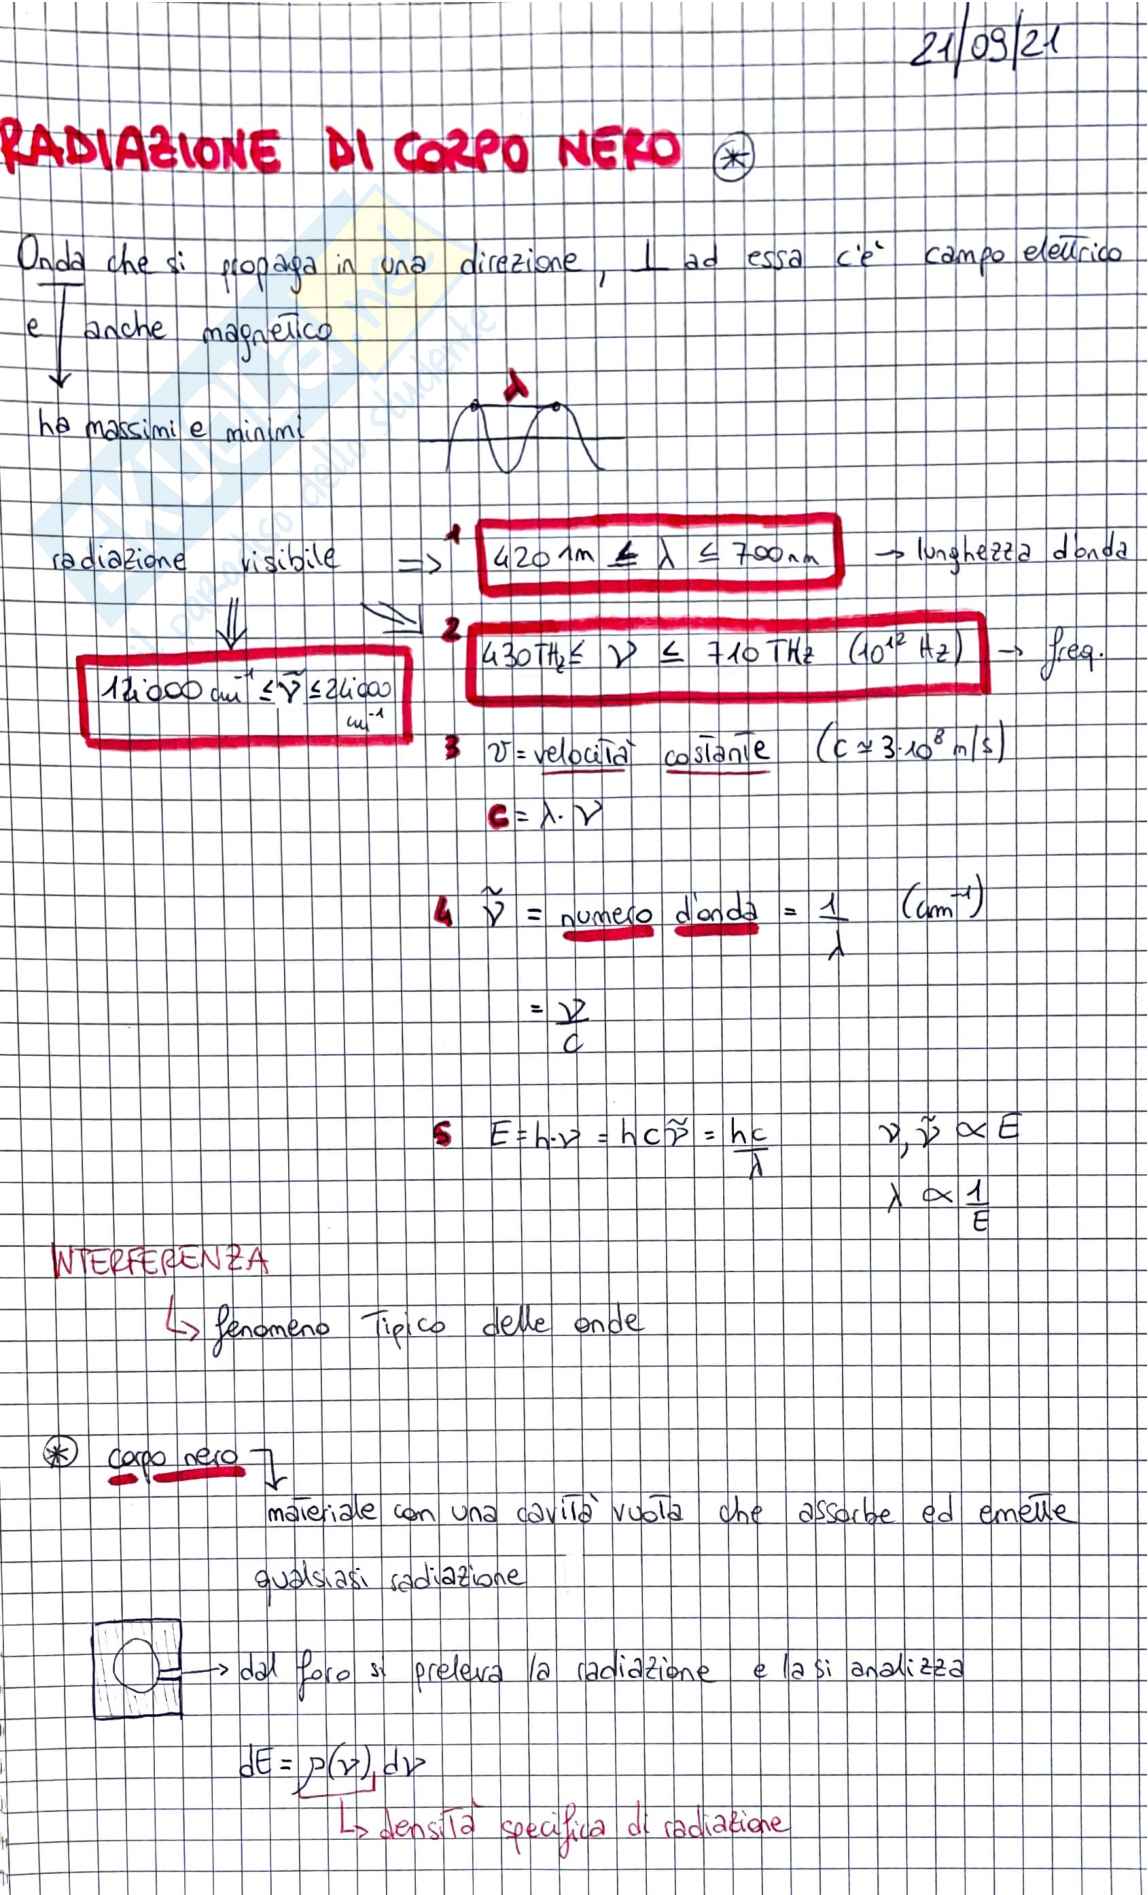 21/09/21
RADIAZIONE DI CORPO NERO *
Onda che si propaga in una direzione, ⊥ ad essa c'è campo elettrico
e anche magnetico
ha massimi e minimi
λ
radiazione visibile => 1 420 nm ≤ λ ≤ 700 nm → lunghezza d'onda
2 430 THz ≤ ν ≤ 710 THz (10¹² Hz) → freq.
14'000 cm⁻¹ ≤ ν̃ ≤ 24'000 cm⁻¹
3 v = velocità costante (c ≃ 3·10⁸ m/s)
c = λ · ν
4 ν̃ = numero d'onda = 1/λ (cm⁻¹)
= ν/c
5 E = h·ν = hcν̃ = hc/λ ν, ν̃ ∝ E
λ ∝ 1/E
INTERFERENZA
↳ fenomeno tipico delle onde
* corpo nero
materiale con una cavità vuota che assorbe ed emette
qualsiasi radiazione
→ dal foro si preleva la radiazione e la si analizza
dE = ρ(ν) dν
↳ densità specifica di radiazione
skuola.net
il paradiso dello studente